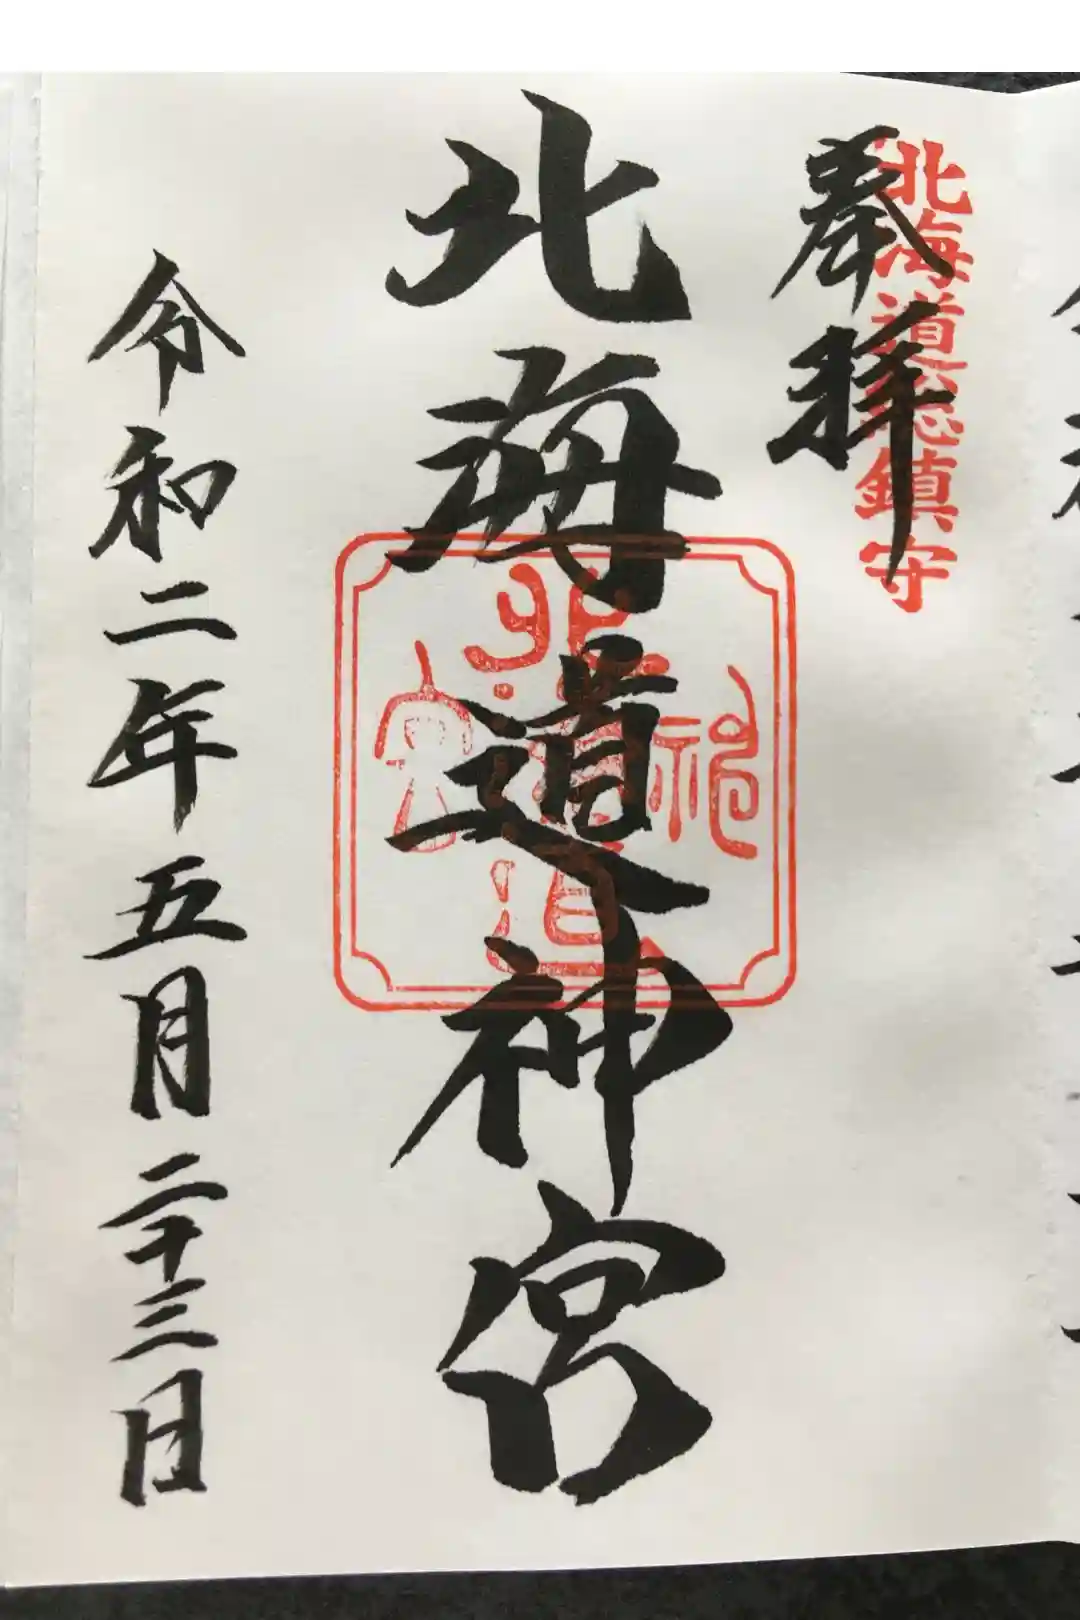 北海道総鎮守
奉拝
北海道神宮
令和二年五月二十三日